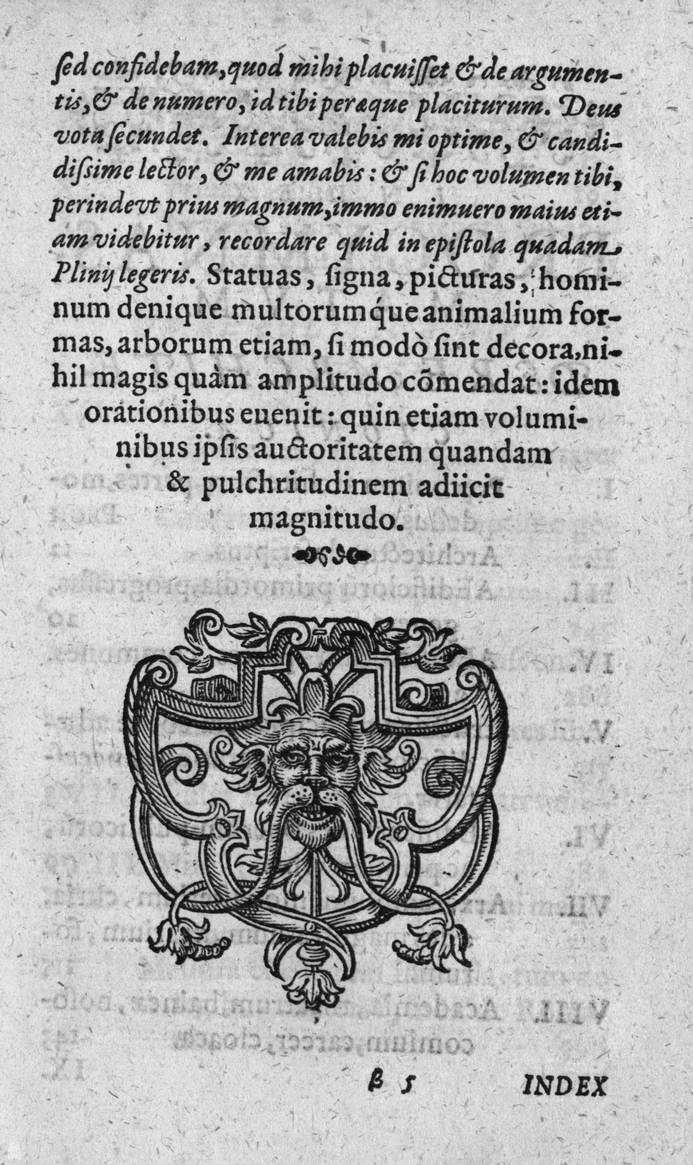 ſed confidebam, quod mihi placuiſſet & de argumen-
tis, & de numero, id tibi peræque placiturum. Deus
vota ſecundet. Interea valebis mi optime, & candi-
diſsime lector, & me amabis: & ſi hoc volumen tibi,
perinde vt prius magnum, immo enimuero maius eti-
am videbitur, recordare quid in epiſtola quadam
Plinij legeris. Statuas, ſigna, picturas, homi-
num denique multorumq́ue animalium for-
mas, arborum etiam, ſi modò ſint decora, ni-
hil magis quàm amplitudo cõmendat: idem
orationibus euenit: quin etiam volumi-
nibus ipſis auctoritatem quandam
& pulchritudinem adiicit
magnitudo.
β 5 INDEX